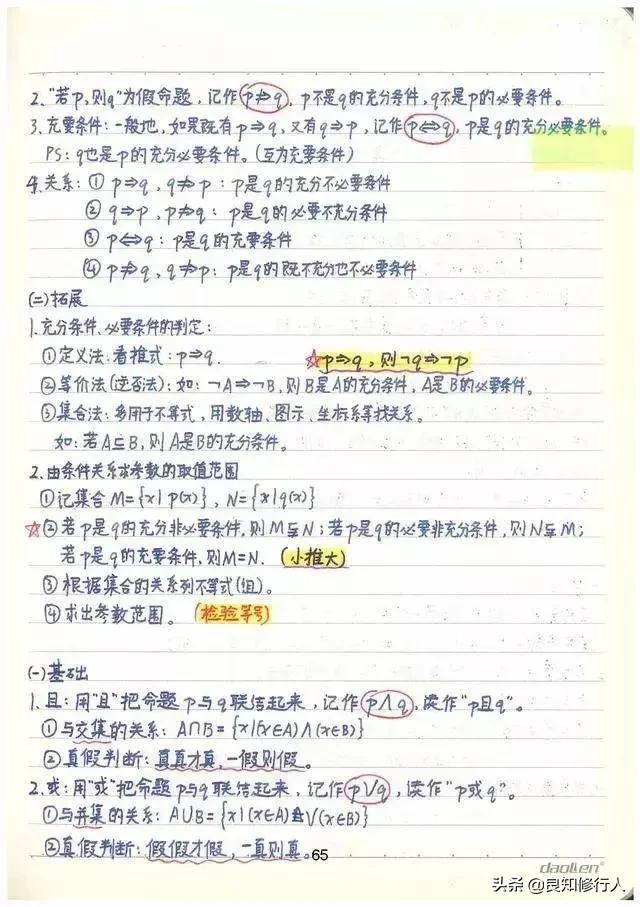 2. "若p,则q"为假命题,记作p⇏q,p不是q的充分条件,q不是p的必要条件。
3. 充要条件:一般地,如果既有p⇒q,又有q⇒p,记作p⇔q,p是q的充分必要条件。
PS:q也是p的充分必要条件。(互为充要条件)
4. 关系:① p⇒q,q⇏p:p是q的充分不必要条件
② q⇒p,p⇏q:p是q的必要不充分条件
③ p⇔q:p是q的充要条件
④ p⇏q,q⇏p:p是q的既不充分也不必要条件
(二)拓展
1. 充分条件、必要条件的判定:
①定义法:看推式:p⇒q. ☆p⇒q,则¬q⇒¬p
②等价法(逆否法):如:¬A⇒¬B,则B是A的充分条件,A是B的必要条件。
③集合法:多用于不等式,用数轴、图示、坐标系等找关系。
如:若A⊆B,则A是B的充分条件。
2. 由条件关系求参数的取值范围
①记集合M={x|p(x)},N={x|q(x)}
☆②若p是q的充分非必要条件,则M⫋N;若p是q的必要非充分条件,则N⫋M;
若p是q的充要条件,则M=N. (小推大)
③根据集合的关系列不等式(组)。
④求出参数范围。(检验等号)
(一)基础
1. 且:用"且"把命题p与q联结起来,记作p∧q,读作"p且q"。
①与交集的关系:A∩B={x|(x∈A)∧(x∈B)}
②真假判断:真真才真,一假则假。
2. 或:用"或"把命题p与q联结起来,记作p∨q,读作"p或q"。
①与并集的关系:A∪B={x|(x∈A)∨(x∈B)}
②真假判断:假假才假,一真则真。
65
daolien®
头条 @良知修行人